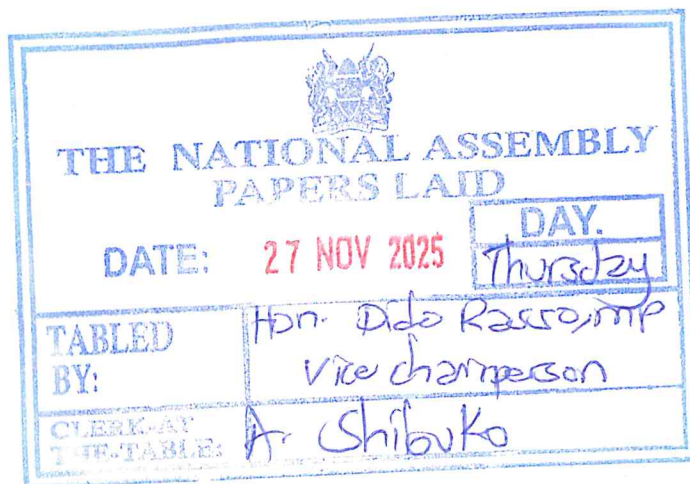 THE NATIONAL ASSEMBLY
PAPERS LAID
DATE: 27 NOV 2025
DAY.
Thursday
TABLED BY: Hon. Dido Rasso, MP
Vice chairperson
CLERK-AT THE-TABLE: A. Shibuko